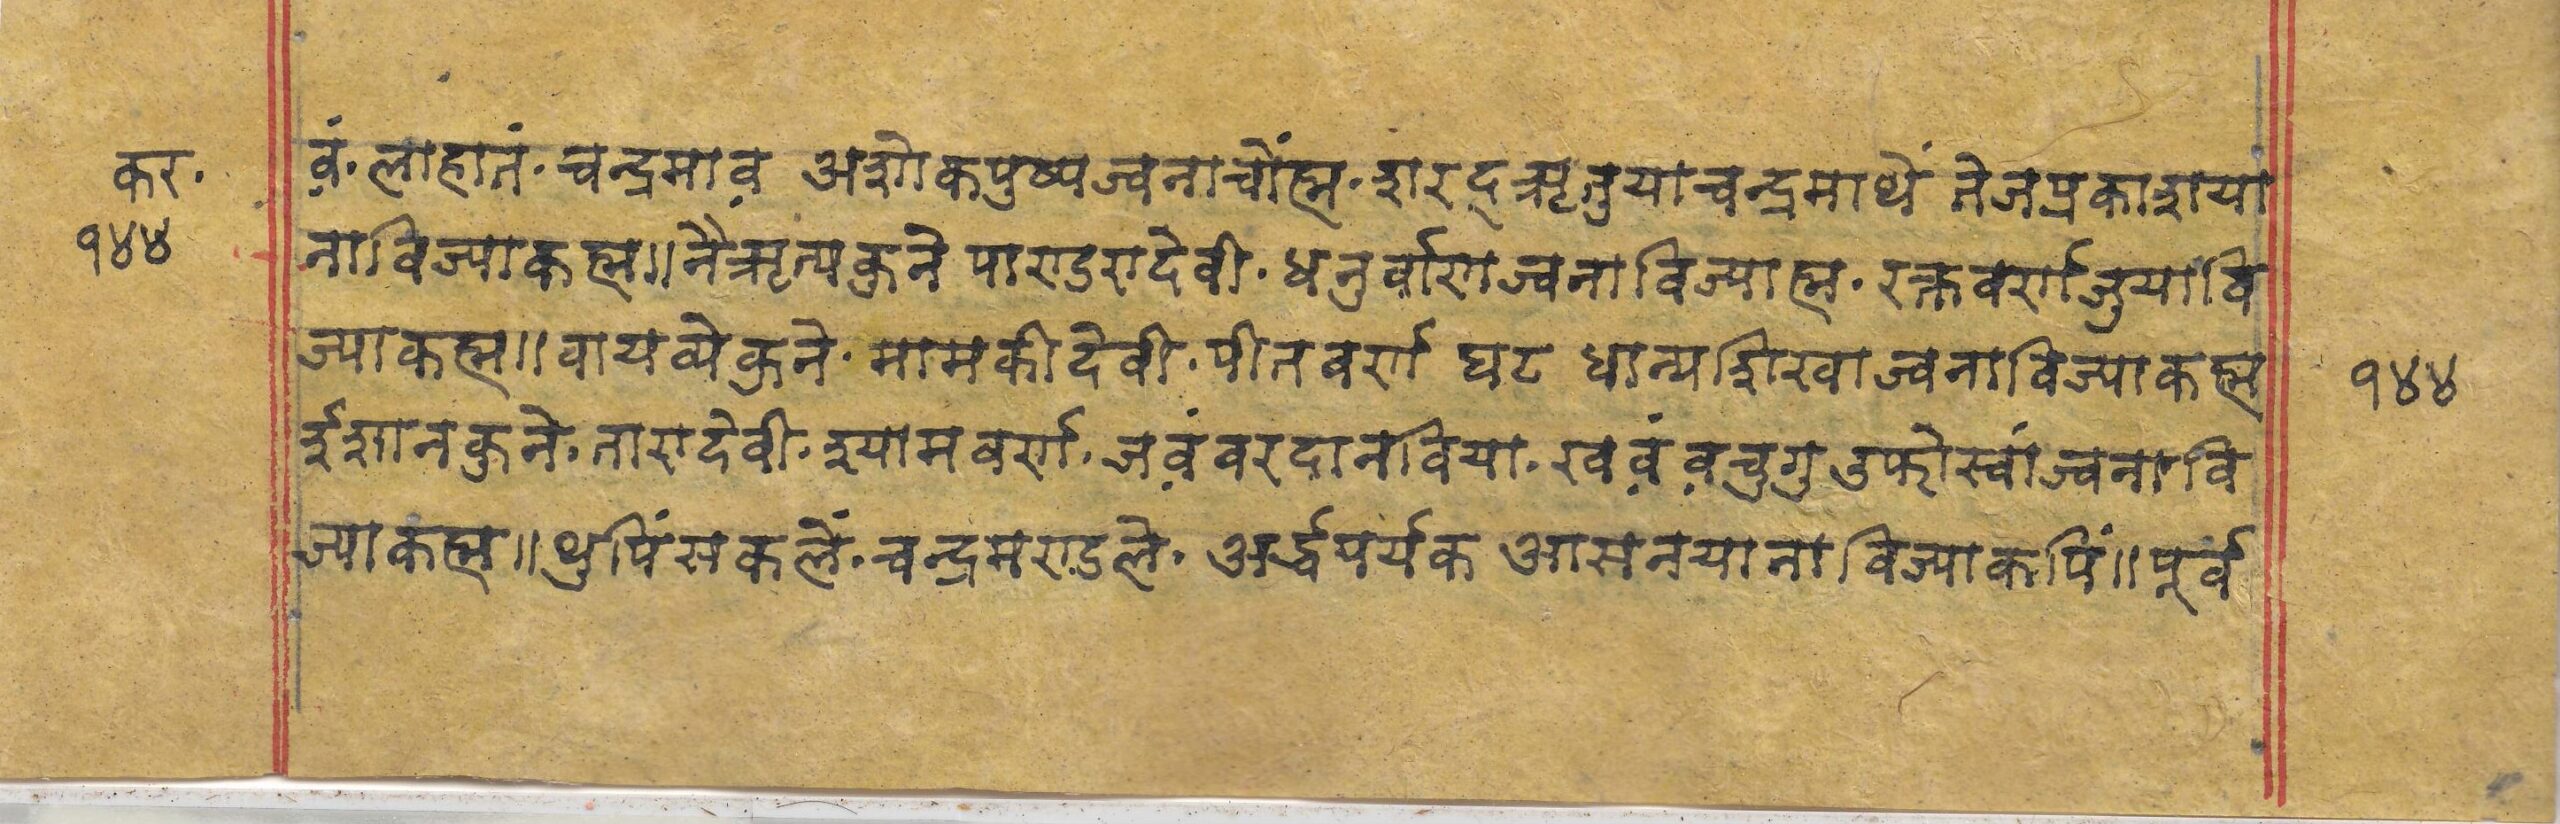 कर. व़ं. लाहातं. चन्द्रमाव़ अशोकपुष्पज्वनाचोंह्म. शरद्ऋतुयाचन्द्रमाथें तेजप्रकाशयाना
१४४ नाविज्याकह्म॥नैऋत्यकुने पाण्डरादेवी. धनुर्वाणज्वनाविज्याह्म. रक्तवर्णजुयावि
ज्याकह्म॥वायव्येकुने. मामकीदेवी. पीतवर्ण घट धान्यशिखाज्वनाविज्याकह्म १४४
ईशानकुने. तारादेवी. श्यामवर्ण. जव़ंवरदानविया. खव़ंव़चुगुउफोस्वांज्वनावि
ज्याकह्म॥थुपिंसकलें. चन्द्रमण्डले. अर्द्धपर्यक आसनयानाविज्याकपिं॥पूर्व